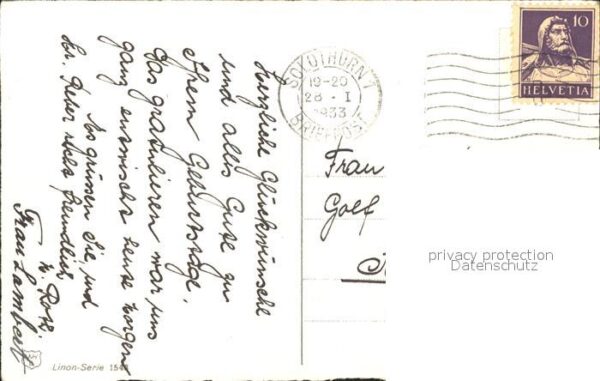 Herzliche Glückwünsche
und alles Gute zu
Ihrem Geburtstage.
Das gratulieren war uns
ganz heute morgen
Es grüssen Sie und
Hr. freundlich
Rose
Frau Lambert
SOLOTHURN 1
19-20
28. I
1933
BRIEFPOST
10
HELVETIA
Frau
Golf
privacy protection
Datenschutz
Linon-Serie 154